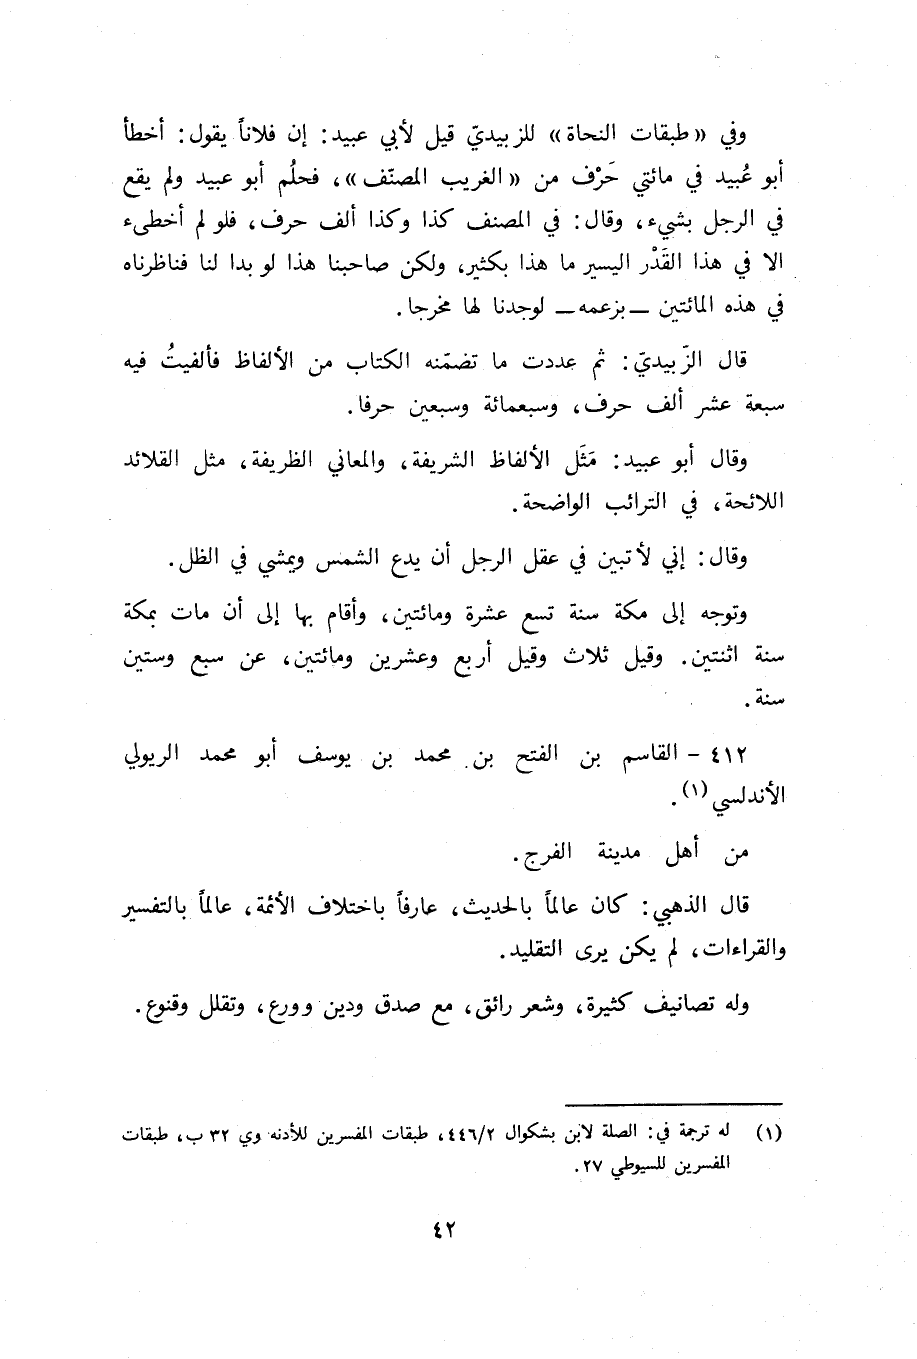 وفي «طبقات النحاة» للزبيديّ قيل لأبي عبيد: إن فلاناً يقول: أخطأ
أبو عُبيد في مائتي حَرْف من «الغريب المصنّف»، فحلُم أبو عبيد ولم يقع
في الرجل بشيء، وقال: في المصنف كذا وكذا ألف حرف، فلو لم أخطىء
الا في هذا القَدْر اليسير ما هذا بكثير، ولكن صاحبنا هذا لو بدا لنا فناظرناه
في هذه المائتين ــ بزعمه ــ لوجدنا لها مخرجا.
قال الزّبيديّ: ثم عددت ما تضمّنه الكتاب من الألفاظ فألفيتُ فيه
سبعة عشر ألف حرف، وسبعمائة وسبعين حرفا.
وقال أبو عبيد: مَثَل الألفاظ الشريفة، والمعاني الظريفة، مثل القلائد
اللائحة، في الترائب الواضحة.
وقال: إني لأتبين في عقل الرجل أن يدع الشمس ويمشي في الظل.
وتوجه إلى مكة سنة تسع عشرة ومائتين، وأقام بها إلى أن مات بمكة
سنة اثنتين. وقيل ثلاث وقيل أربع وعشرين ومائتين، عن سبع وستين
سنة.
٤١٢ - القاسم بن الفتح بن محمد بن يوسف أبو محمد الريولي
الأندلسي(١).
من أهل مدينة الفرج.
قال الذهبي: كان عالماً بالحديث، عارفاً باختلاف الأئمة، عالماً بالتفسير
والقراءات، لم يكن يرى التقليد.
وله تصانيف كثيرة، وشعر رائق، مع صدق ودين وورع، وتقلل وقنوع.
(١) له ترجمة في: الصلة لابن بشكوال ٤٤٦/٢، طبقات المفسرين للأدنه وي ٣٢ ب، طبقات
المفسرين للسيوطي ٢٧.
٤٢